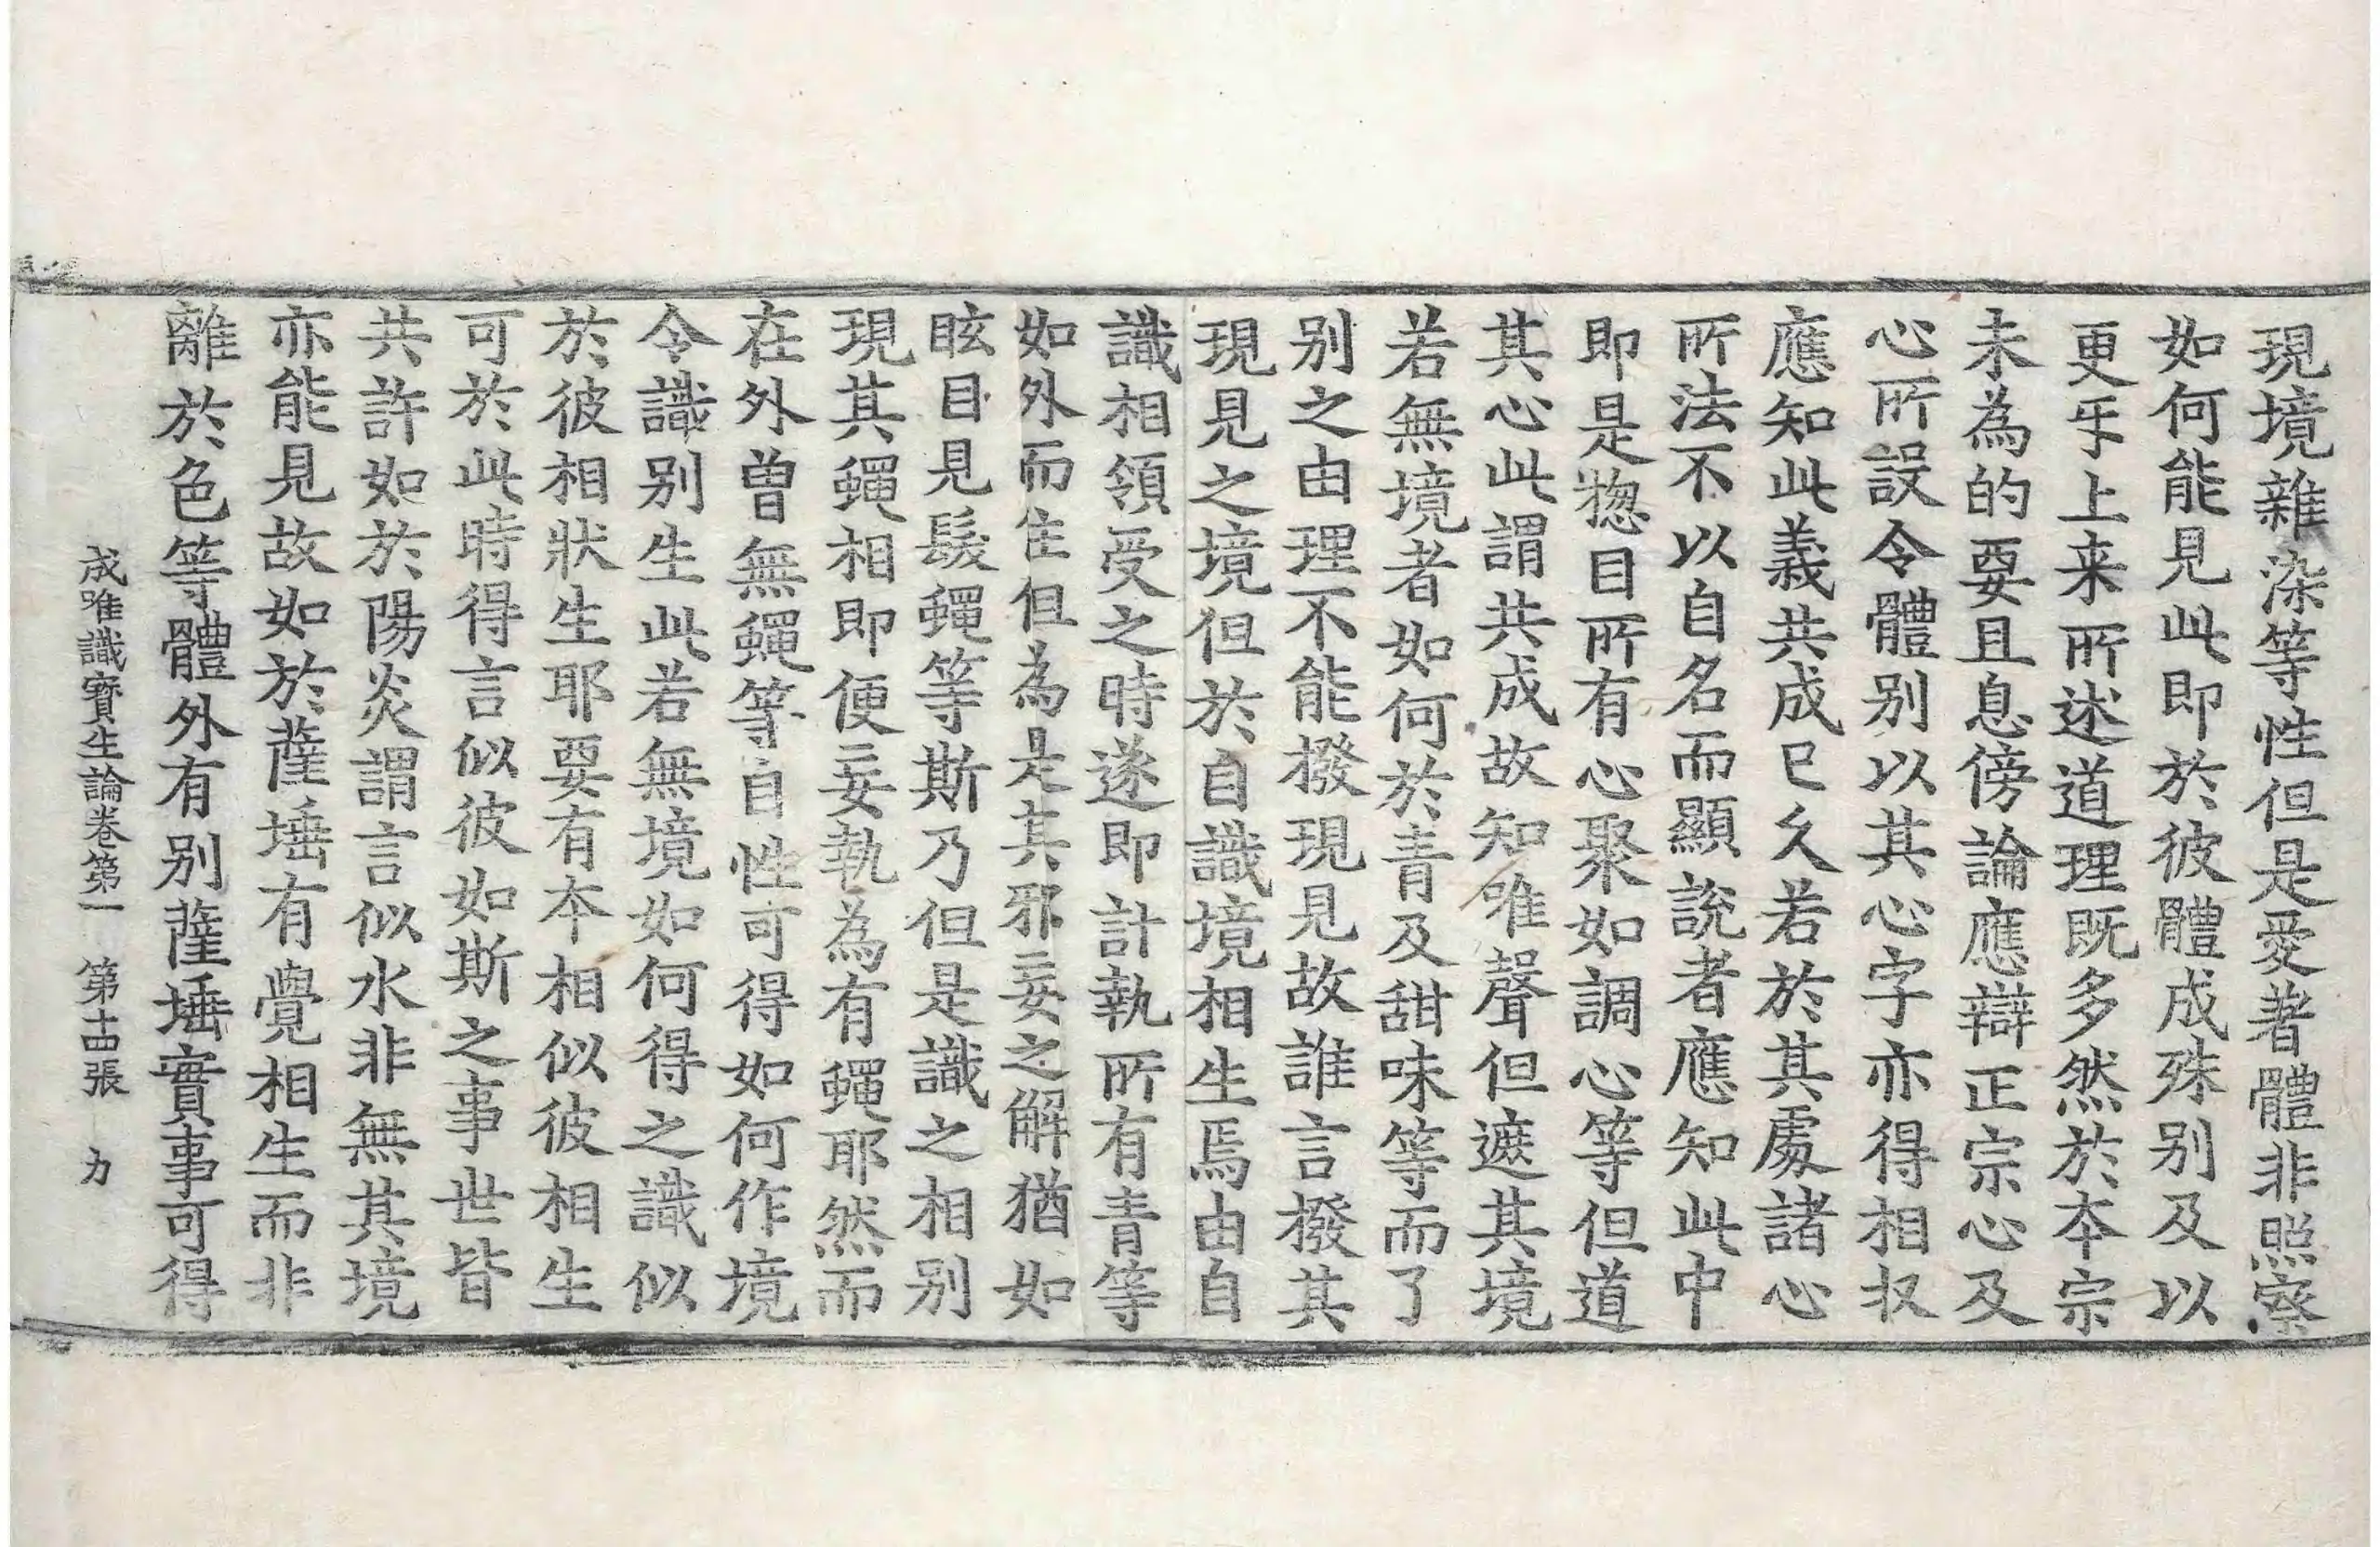 現境雜染等性但是愛著體非照察
如何能見此即於彼體成殊別及以
更乎上来所述道理既多然於本宗
未為的要且息傍論應辯正宗心及
心所設令體別以其心字亦得相収
應知此義共成已久若於其處諸心
所法不以自名而顯說者應知此中
即是揔目所有心聚如調心等但道
其心此謂共成故知唯聲但遮其境
若無境者如何於青及甜味等而了
別之由理不能撥現見故誰言撥其
現見之境但於自識境相生焉由自
識相領受之時遂即計執所有青等
如外而住但為是其邪妄之解猶如
眩目見髮蠅等斯乃但是識之相別
現其蠅相即便妄執為有蠅耶然而
在外曾無蠅等自性可得如何作境
令識別生此若無境如何得之識似
於彼相狀生耶要有本相似彼相生
可於此時得言似彼如斯之事世皆
共許如於陽炎謂言似水非無其境
亦能見故如於薩埵有覺相生而非
離於色等體外有別薩埵實事可得
成唯識寶生論卷第一　第十四張　力